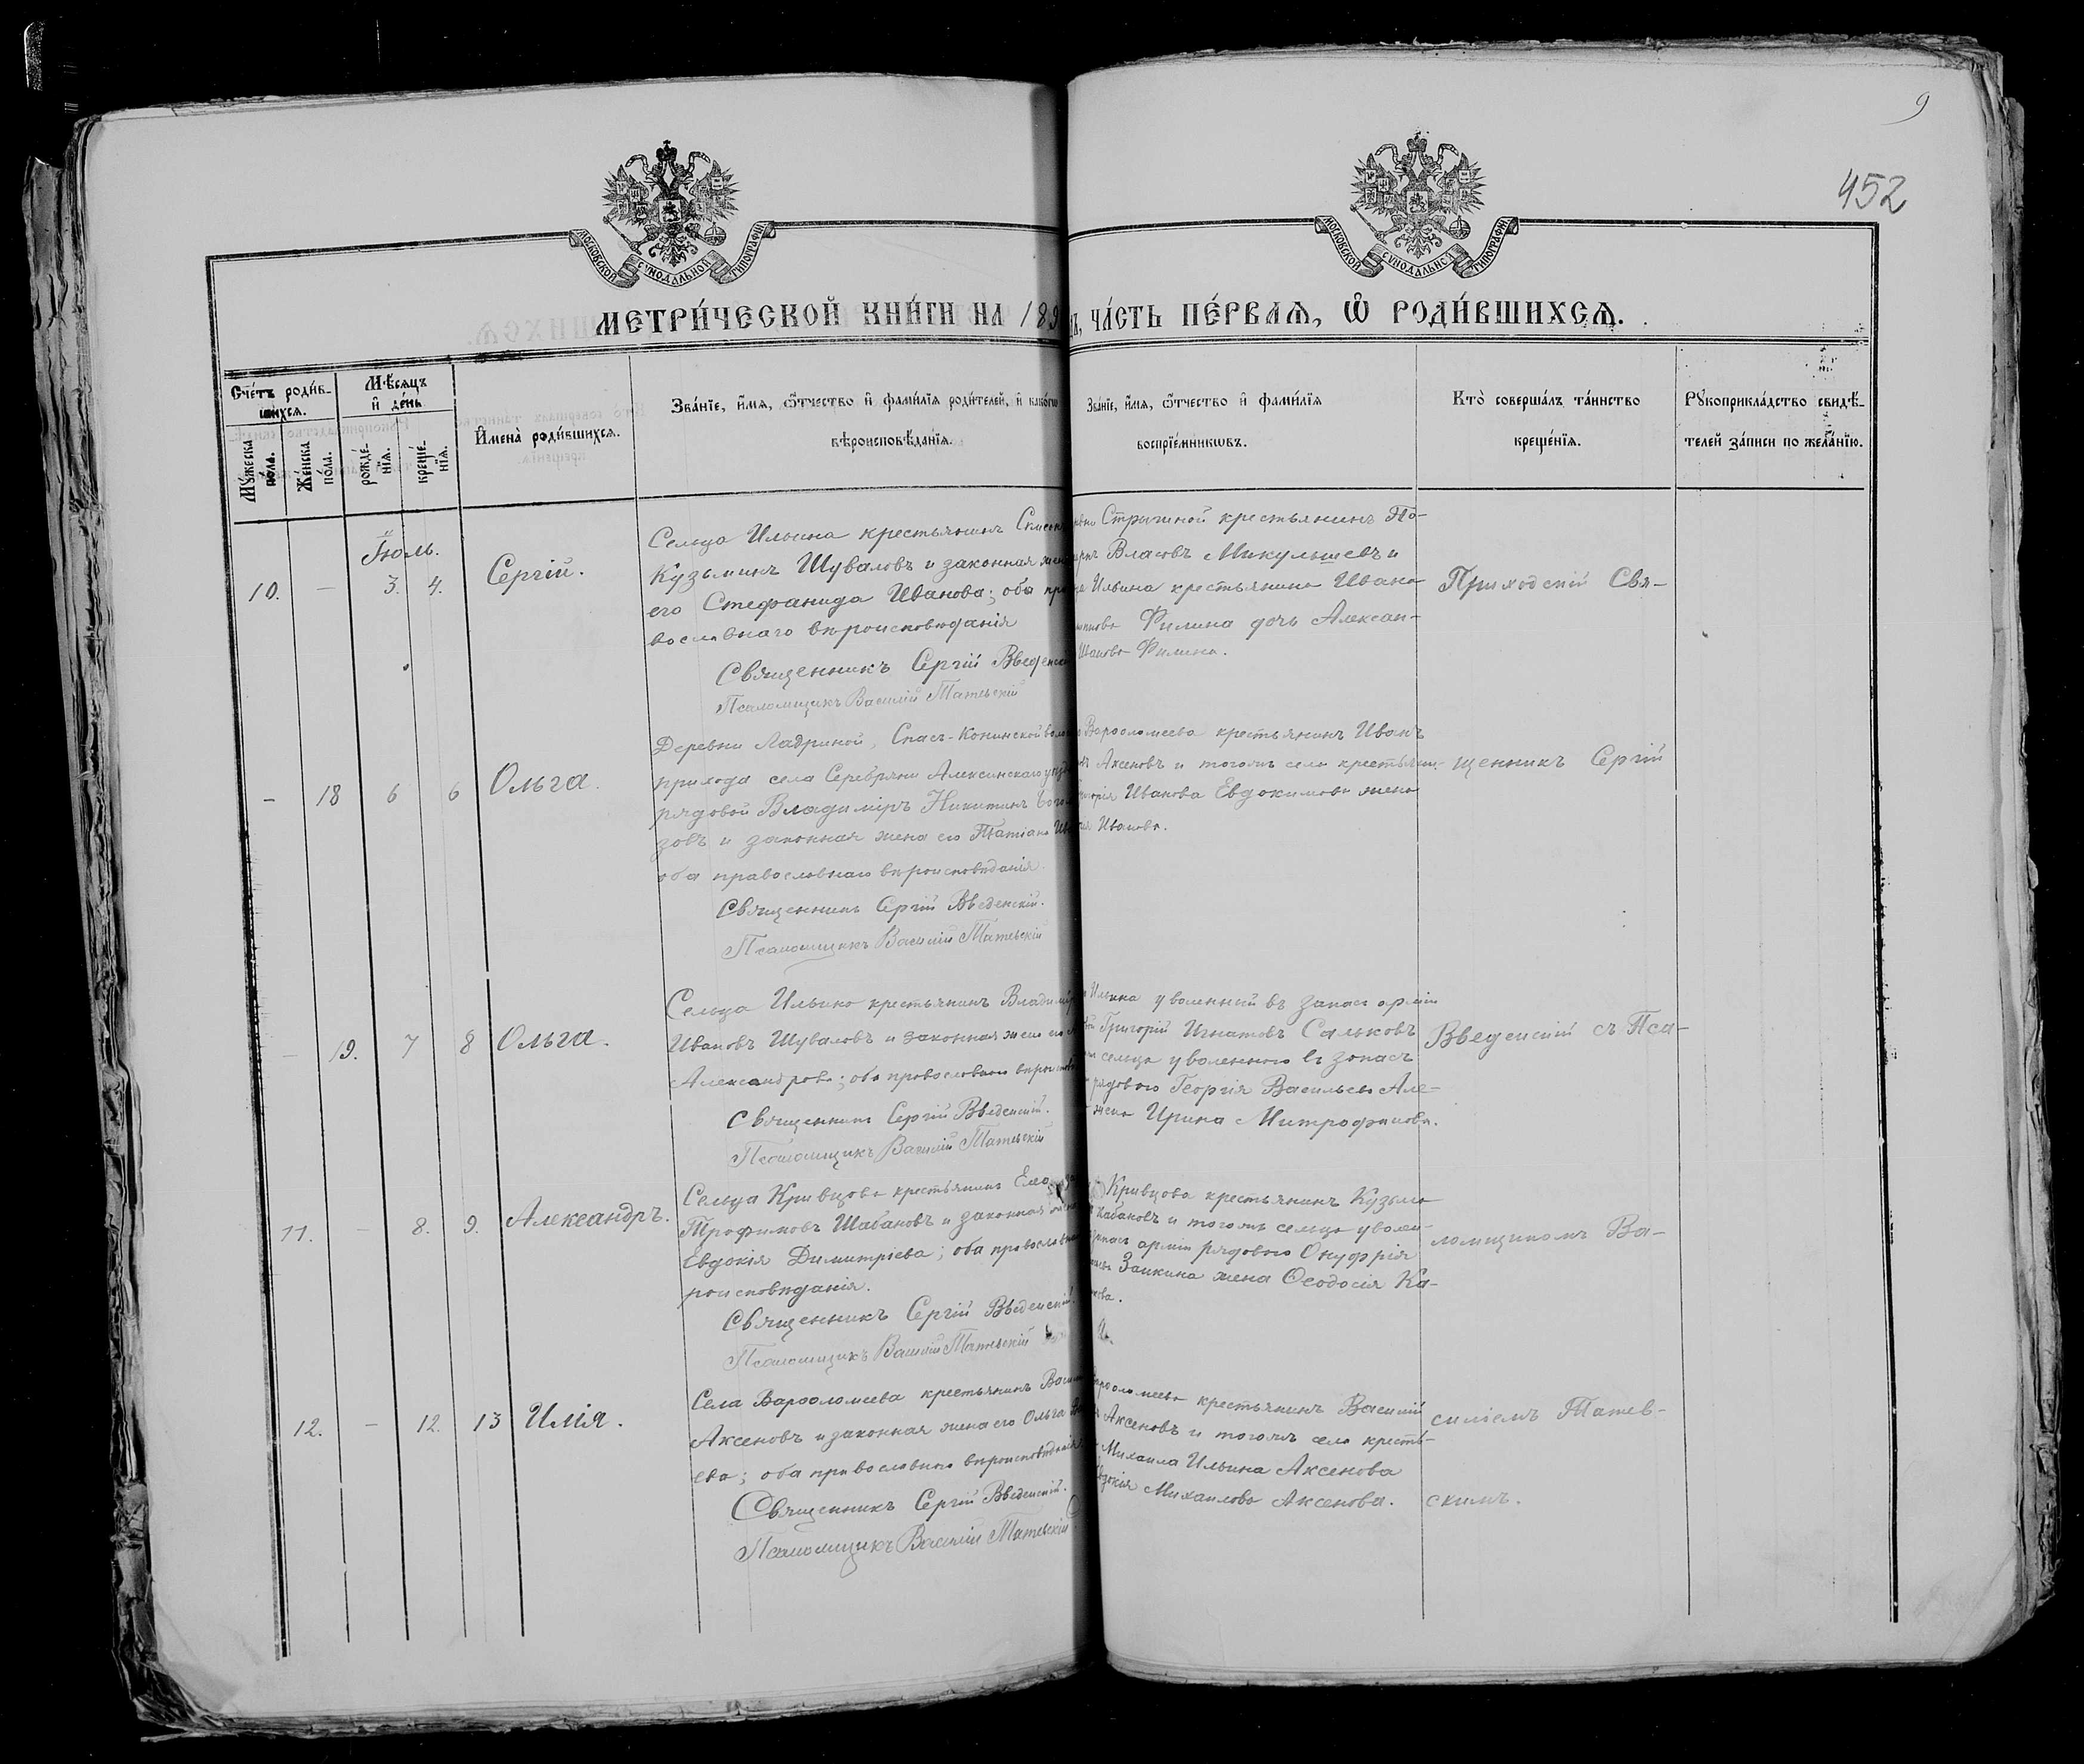 9
452
МОСКОВСКОЙ СѴНОДАЛЬНОЙ ТИПОГРАФІИ
МОСКОВСКОЙ СѴНОДАЛЬНОЙ ТИПОГРАФІИ
МЕТРИ́ЧЕСКОЙ КНИ́ГИ НА 189
ЧА́СТЬ ПЕ́РВАѦ, Ѡ҆ РОДИ́ВШИХСѦ.
Сче́тъ роди́в-
шихсѧ.
Му́жеска по́ла.
Же́нска по́ла.
Мѣ́сѧцъ
и҆ де́нь
рожде́-
нїѧ.
креще́-
нїѧ.
И҆мена̀ роди́вшихсѧ.
Зва́нїе, и҆́мѧ, ѻ҆́тчество и҆ фами́лїѧ роди́телей, и҆ како́гѡ
вѣроисповѣ́данїѧ.
Зва́нїе, и҆́мѧ, ѻ҆́тчество и҆ фами́лїѧ
воспрїе́мникѡвъ.
Кто̀ соверша́лъ та́инство
креще́нїѧ.
Рꙋкоприкла́дство свидѣ́-
телей за́писи по жела́нїю.
Іюль.
10. — 3. 4. Сергій.
Сельца Ильина крестьянинъ
Кузьминъ Шуваловъ и законная
его Стефанида Иванова; оба
вославнаго вѣроисповѣданія
Священникъ Сергій
Псаломщикъ Василій Татевскій
Стригиной крестьянинъ По-
Власовъ Микулышевъ и
Ильина крестьянина Ивана
Филина дочь Алексан-
Иванова Филина.
— 18 6 6 Ольга.
Деревни Ладриной, Спасъ-Конинской
прихода села Серебряни Алексинскаго
рядовой Владиміръ Никитинъ
зовъ и законная жена его Татіана
оба православнаго вѣроисповѣданія.
Священникъ Сергій Введенскій.
Псаломщикъ Василій Татевскій
Варѳоломеева крестьянинъ Иванъ
Аксеновъ и тогожъ села крестьянин-
Иванова Евдокимова жена
Иванова.
— 19. 7 8 Ольга.
Сельца Ильина крестьянинъ
Ивановъ Шуваловъ и законная жена его
Александрова; оба православнаго
Священникъ Сергій Введенскій.
Псаломщикъ Василій Татевскій
Ильина уволенный въ запасъ арміи
Григорій Игнатовъ Сальковъ
сельца уволеннаго въ запасъ
рядового Георгія Васильева Але-
жена Ирина Митрофанова.
11. — 8. 9. Александръ.
Сельца Кривцова крестьянинъ
Трофимовъ Шабановъ и законная
Евдокія Димитріева; оба
роисповѣданія.
Священникъ Сергій Введенскій.
Псаломщикъ Василій Татевскій
Кривцова крестьянинъ Кузьма
и тогожъ сельца уволен-
арміи рядового Онуфрія
Заикина жена Ѳеодосія Ка-
12. — 12. 13 Илія.
Села Варѳоломеева крестьянинъ
Аксеновъ и законная жена его Ольга
ева; оба православнаго вѣроисповѣданія
Священникъ Сергій Введенскій.
Псаломщикъ Василій Татевскій
крестьянинъ Василій
Аксеновъ и тогожъ села кресть-
Михаила Ильина Аксенова
Михаилова Аксенова.
Приходскій Свя-
щенникъ Сергій
Введенскій съ Пса-
ломщикомъ Ва-
силіемъ Татев-
скимъ.